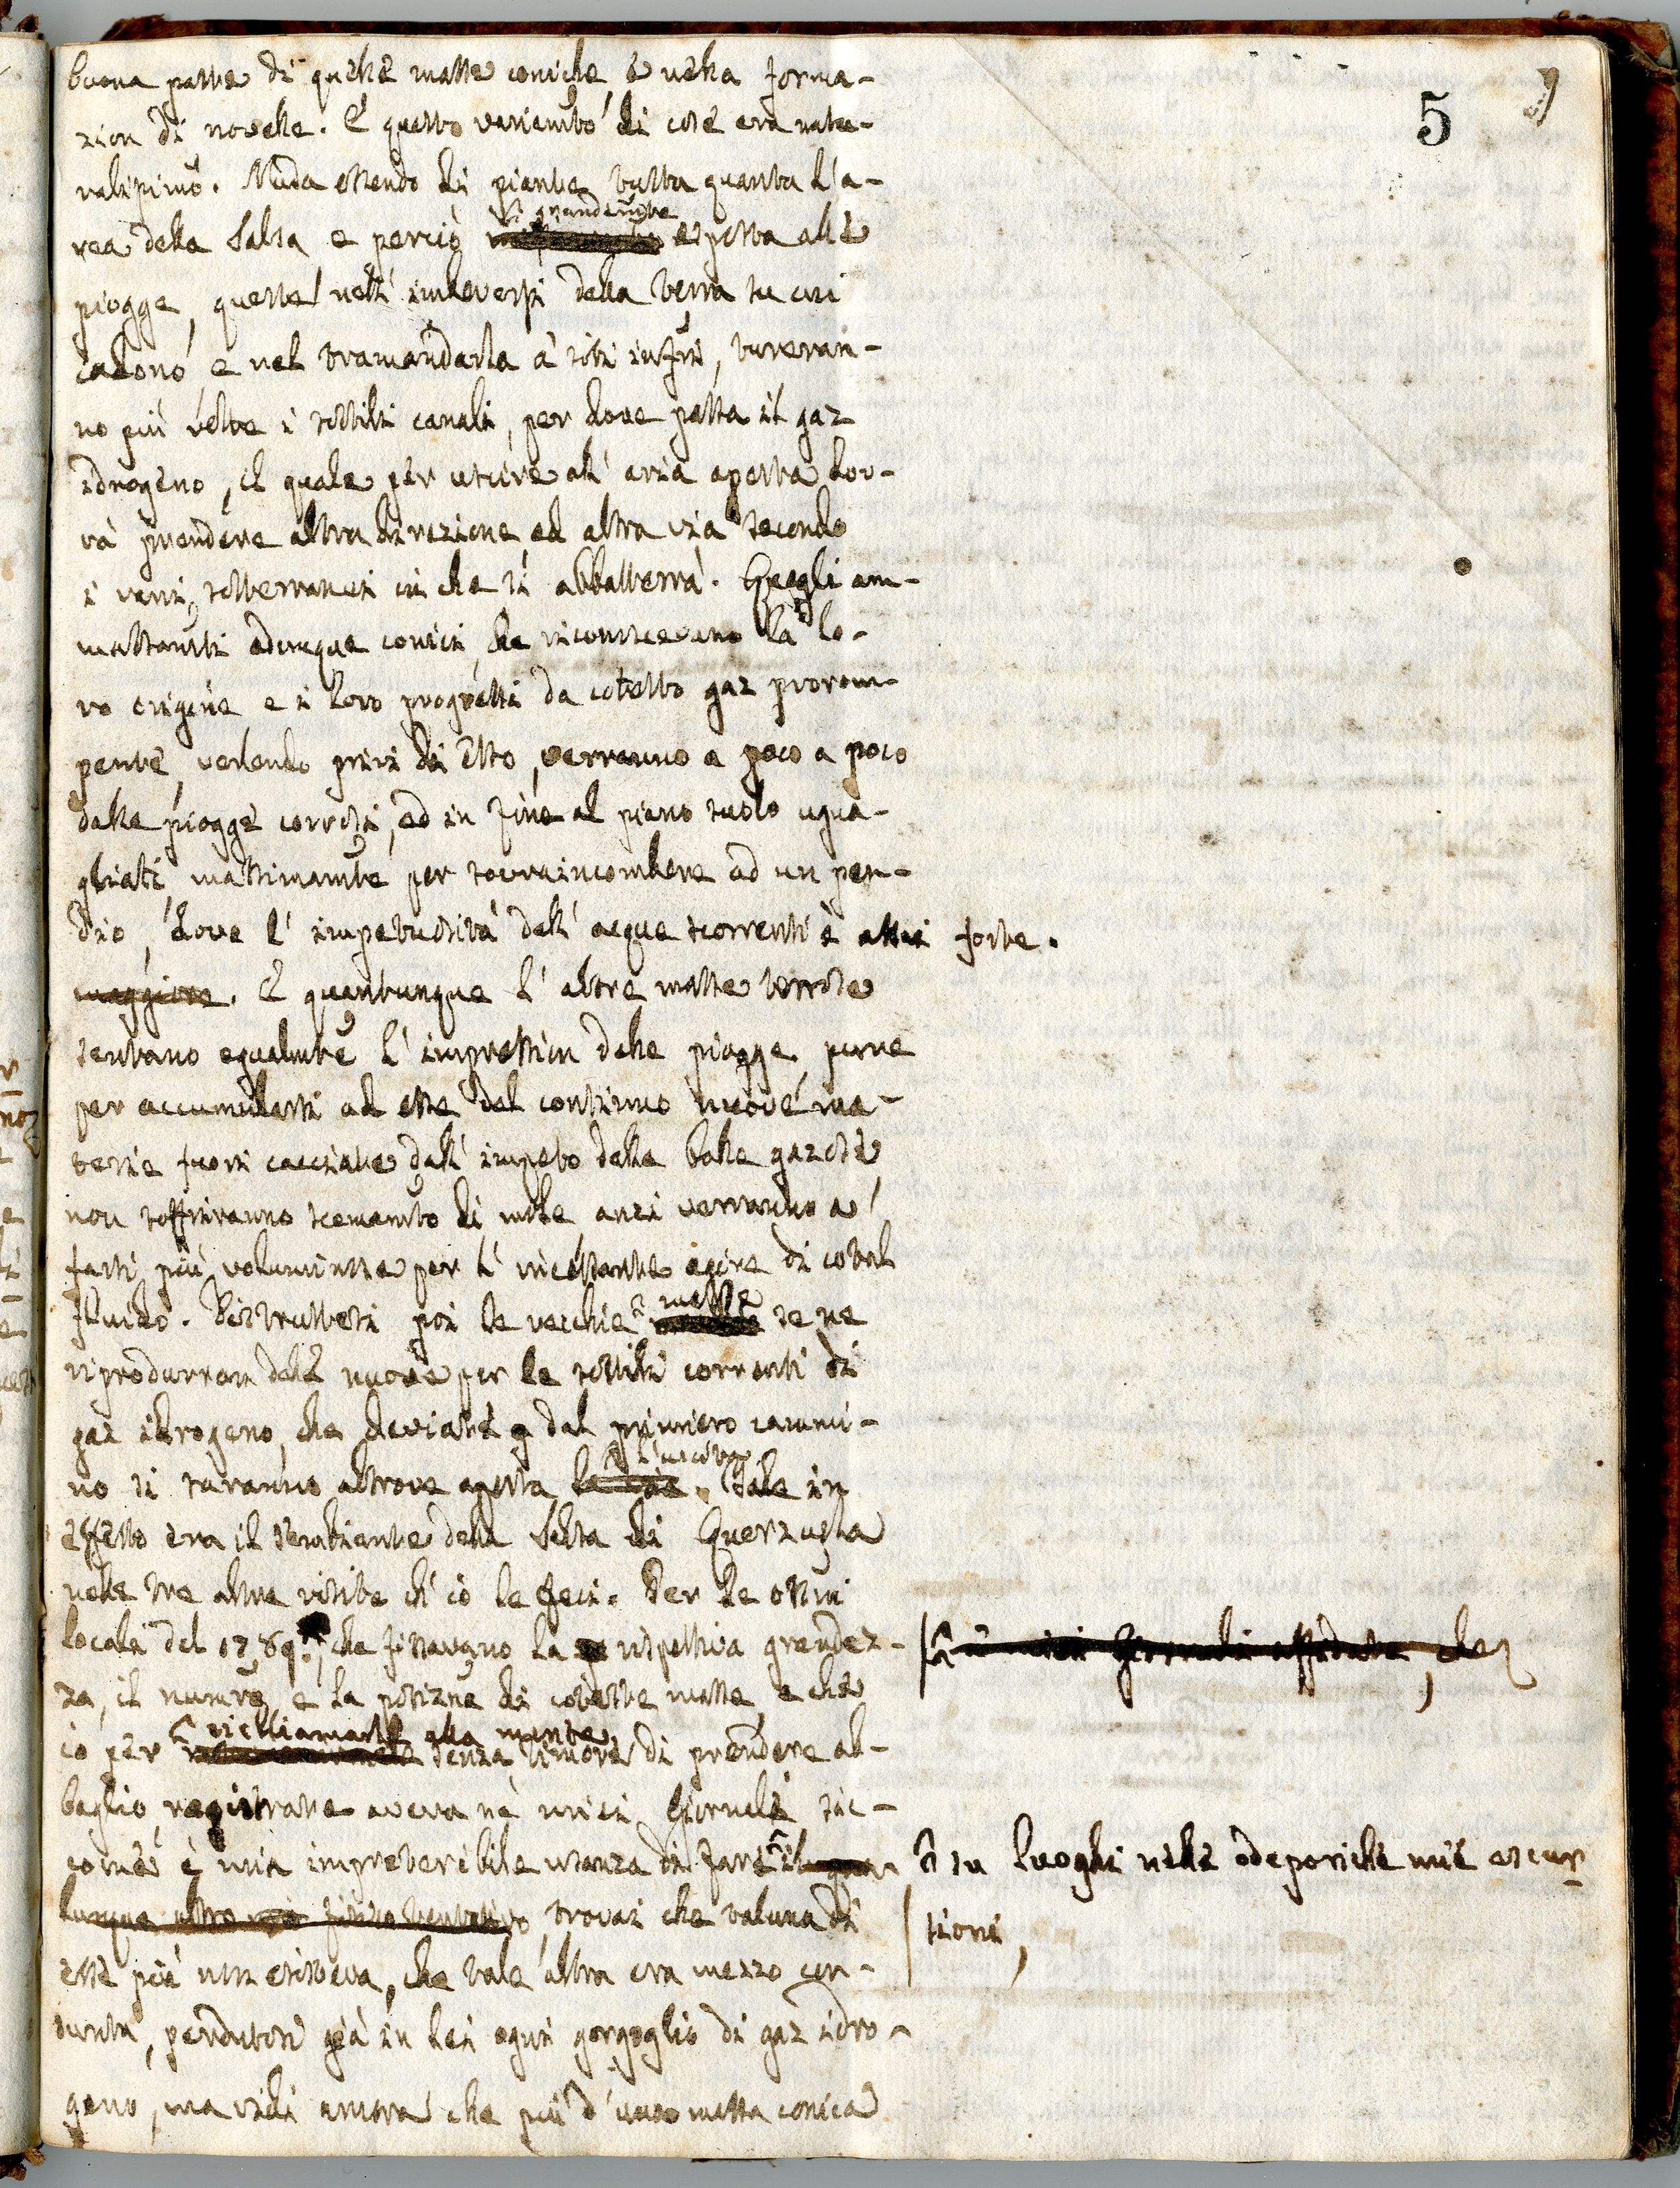 5
buona parte di quelle masse coniche, e nella forma-
zion di novelle. E questo variamto di cose era natu-
ralissimo. Nuda essendo di piante tutta quanta l'a-
rea della Salsa e perciò sì grandemte esposta alle
piogge, queste nell'imbeversi della terra su cui
cadono, e nel tramandarla a' siti infri, tureran-
no più volte i sottili canali, per dove passa il gaz
idrogeno, il quale per uscire all'aria aperta dov-
rà prendere altra direzione, ed altra via secondo
i vani sotterranei in che si abbatterà. Quegli am-
massamti adunque conici, che riconoscevano la lo-
ro origine e i loro progressi da cotesto gaz prorom-
pente, venendo privi di esso, verranno a poco a poco
dalle piogge corrosi, ed in fine al piano suolo ugua-
gliati, massimamte per sovraincombere ad un pen-
dio, dove l'impetuosità dell'acque scorrenti è assai forte.
maggiore. E quantunque l'altre masse terrose
sentano egualmte l'impression delle piogge, pure
per accumularsi ad esse del continuo nuove ma-
terie fuori cacciate dall'impeto delle bolle gazose,
non soffriranno scemamto di mole anzi verranno a
farsi più voluminose per l'incessante agire di cotal
fluido. Distruttesi poi le vecchie masse se ne
riprodurran delle nuove per le sottili correnti di
gaz idrogeno, che deviate dal primiero cammi-
no si saranno altrove aperta l'uscita. Tale in
effetto era il sembiante della Salsa di Querzuola
nelle tre altre visite ch'io le feci. Per le ossni
locali del 1789., che fissavano la rispettiva grandez-
za, il numero, e la posizne di coteste masse, e che
io per richiamarle alla mente senza timore di prendere ab-
baglio, registrate aveva ne' miei Giornali, sic-
come è mia impreteribile usanza di fare su luoghi nelle odeporiche mie escur
sioni,
trovai che taluna di
esse più non esisteva, che tale altra era mezzo con-
sunta, perdutosi già in lei ogni gorgoglio di gaz idro-
geno, ma vidi ancora che più d'una massa conica